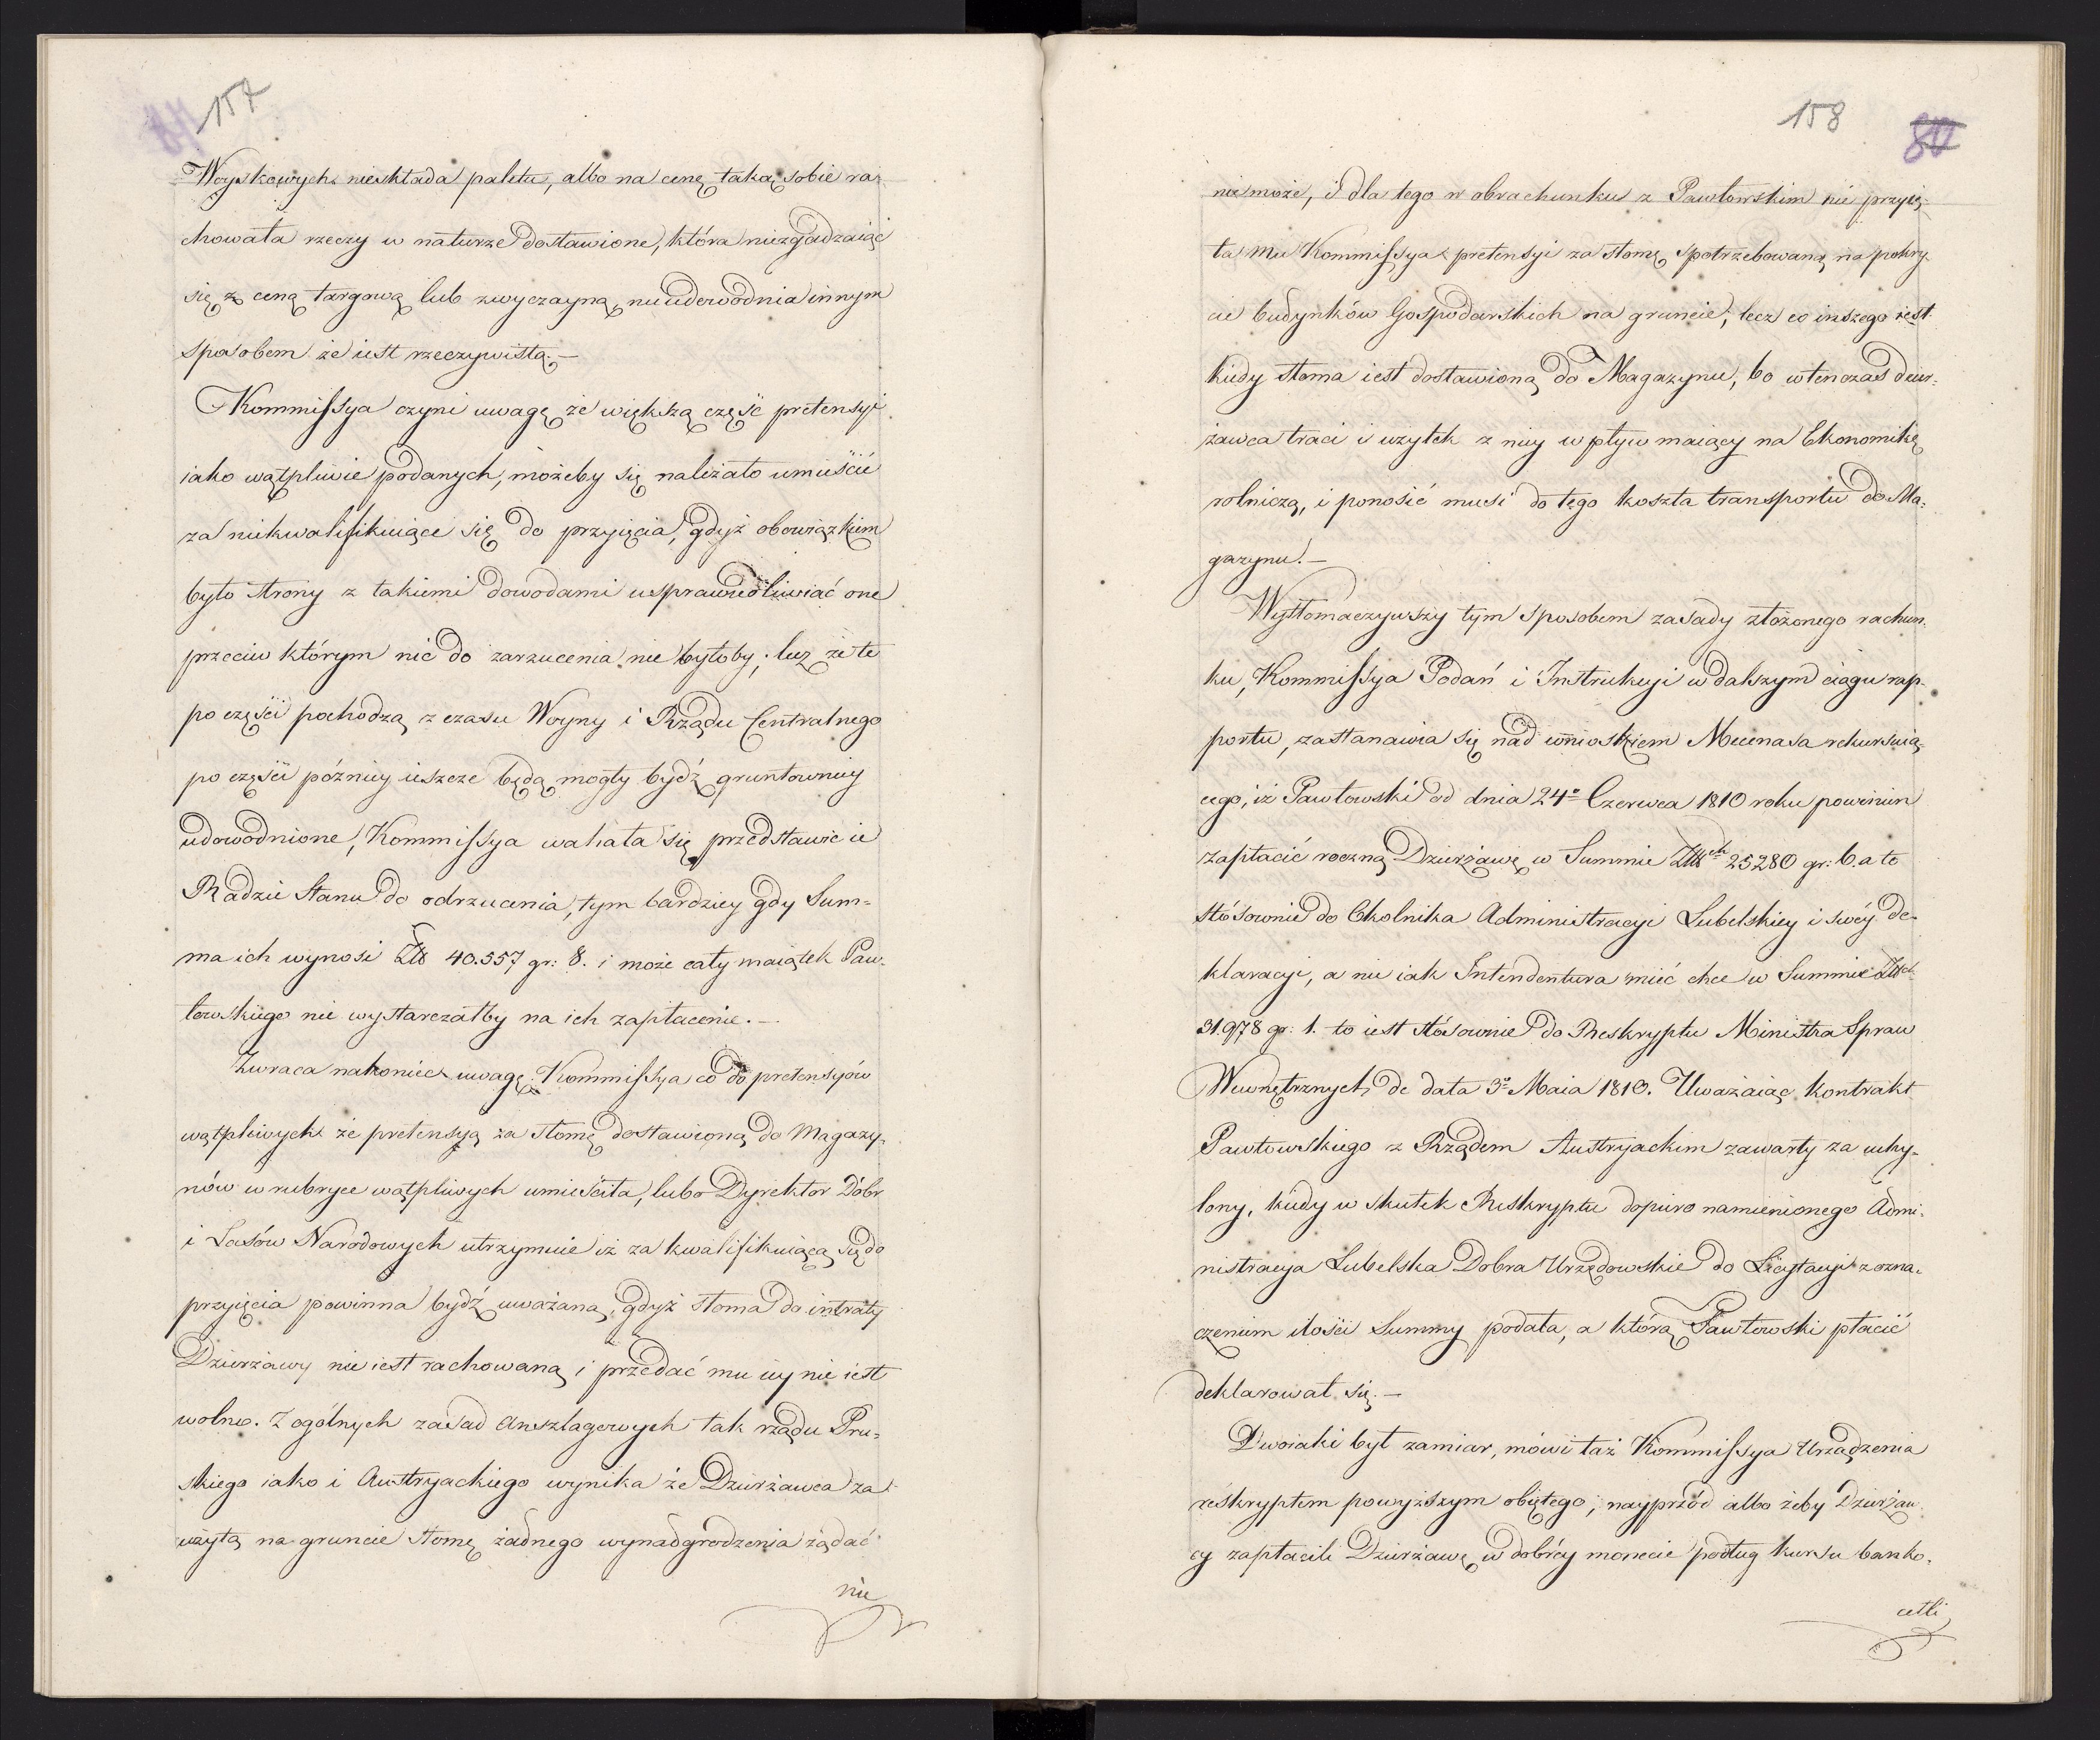 157
Woyskowych nieskłada paletu, albo na cenę taką sobie ra-
chowała rzeczy w naturze dostawione, która niezgadzaiąc
się z ceną targową lub zwyczayną, nieudowodnia innym
sposobem że iest rzeczywistą.—
Kommissya czyni uwagę że większą część pretensyi
iako wątpliwie podanych, możeby się należało umieścić
za niekwalifikuiące się do przyięcia, gdyż obowiązkiem
było strony z takiemi dowodami usprawiedliwiać one
przeciw którym nic do zarzucenia nie byłoby; lecz że te
po części pochodzą z czasu Woyny i Rządu Centralnego
po części późniey ieszcze będą mogły bydź gruntowniey
udowodnione, Kommissya wahała się przedstawić ie
Radzie Stanu do odrzucenia, tym bardziey gdy Sum-
ma ich wynosi Złł 40.557 gr: 8. i może cały maiątek Paw-
łowskiego nie wystarczałby na ich zapłacenie.—
Zwraca nakoniec uwagę Kommissya co do pretensyów
wątpliwych że pretensyą za słomę dostawioną do Magazy-
nów w rubryce wątpliwych umieściła, lubo Dyrektor Dóbr
i Lasów Narodowych utrzymuie iż za kwalifikuiącą się do
przyięcia powinna bydź uważana, gdyż słoma do intraty
Dzierżawy nie iest rachowaną i przedać mu iey nie iest
wolno. Z ogólnych zasad Anszlagowych tak rządu Pru-
skiego iako i Austryackiego wynika że Dzierżawca za
użytą na gruncie słomę żadnego wynadgrodzenia żądać
nie
158
80
nie może, i dla tego w obrachunku z Pawłowskim nie przyię-
ła mu Kommissya pretensyi za słomę spotrzebowaną na pokry-
cie budynków Gospodarskich na gruncie; lecz co inszego iest
kiedy słoma iest dostawioną do Magazynu, bo wtenczas dzier-
żawca traci i użytek z niey wpływ maiący na Ekonomikę
rolniczą, i ponosić musi do tego koszta transportu do Ma-
gazynu.—
Wystomaczywszy tym sposobem zasady złożonego rachun-
ku, Kommissya Podań i Instrukcyi w dalszym ciągu rap-
portu, zastanawia się nad wnioskiem Mecenasa rekursuią-
cego, iż Pawłowski od dnia 24º Czerwca 1810 roku powinien
zapłacić roczną Dzierżawę w Summie Złłch 25280 gr: 6. a to
stósownie do Okolnika Administracyi Lubelskiey i swéy de-
klaracyi, a nie iak Intendentura mieć chce w Summie Złłch
31.978 gr: 1. to iest stósownie do Reskryptu Ministra Spraw
Wewnętrznych de data 3º Maia 1810. Uważaiąc kontrakt
Pawłowskiego z Rządem Austryackim zawarty za uchy-
lony, kiedy w skutek Reskryptu dopiero namienionego Admi-
nistracya Lubelska Dobra Urzędowskie do Licytacyi z ozna-
czeniem ilości Summy podała, a którą Pawłowski płacić
deklarował się.—
Dwoiaki był zamiar, mówi taż Kommissya Urządzenia
reskryptem powyższym obiętego; nayprzód albo żeby Dzierżaw-
cy zapłacili Dzierżawę w dobréy monecie podług kursu banko-
cetli